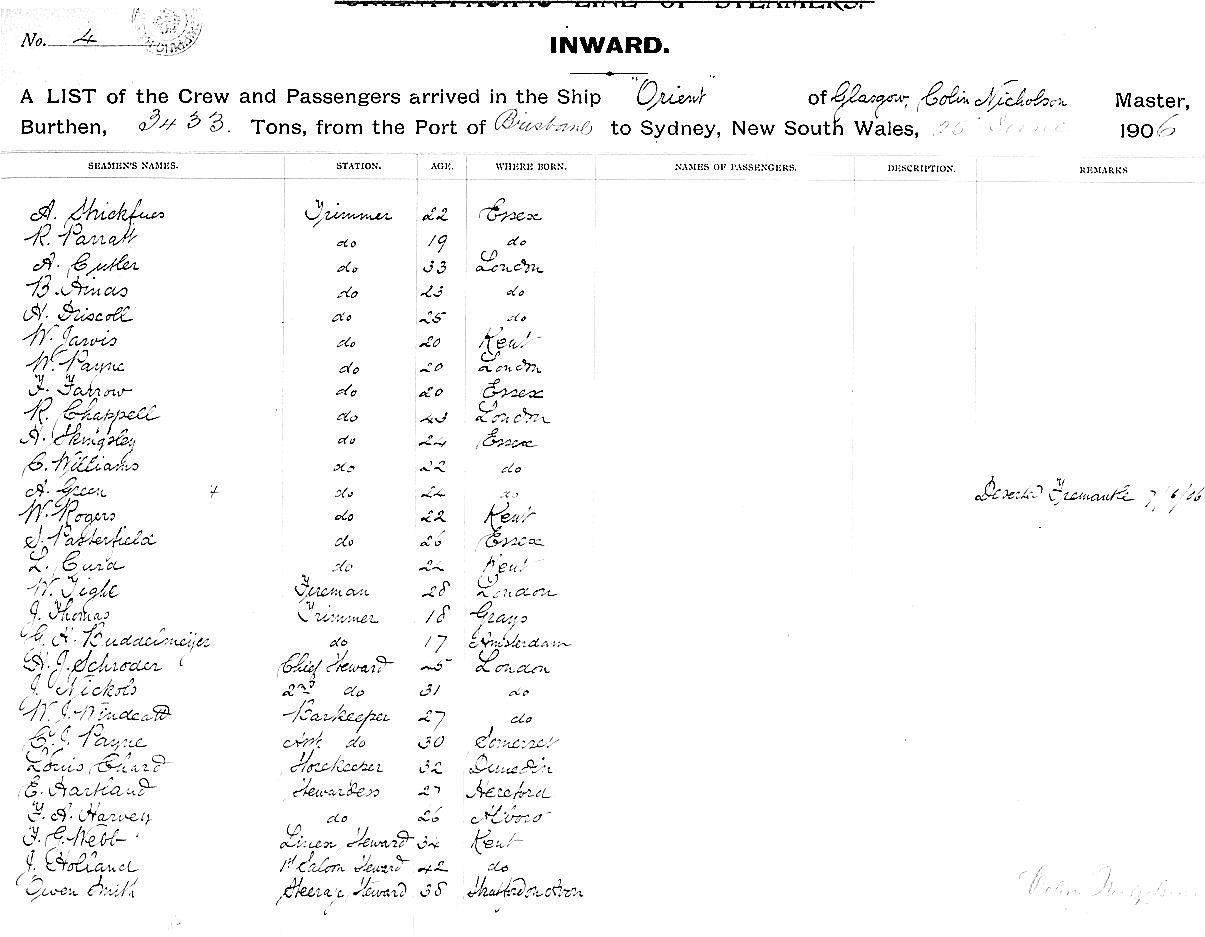 ORIENT-PACIFIC LINE OF STEAMERS.
No. 4
INWARD.
A LIST of the Crew and Passengers arrived in the Ship "Orient" of Glasgow, Colin Nicholson Master,
Burthen, 3433. Tons, from the Port of Brisbane to Sydney, New South Wales, 26 June 1906
SEAMEN'S NAMES. STATION. AGE. WHERE BORN. NAMES OF PASSENGERS. DESCRIPTION. REMARKS
A. Trimmer 22 Essex
R. Parratt do 19 do
A. Cutler do 33 London
B. Hinds do 23 do
H. Driscoll do 25 do
W. Jarvis do 20 Kent
W. Payne do 20 London
F. Farrow do 20 Essex
R. Chappell do 43 London
A. Skingsley do 24 Essex
C. Williams do 22 do
A. Green + do 24 do Deserted Fremantle 7/6/06
W. Rogers do 22 Kent
S. Patterfield do 26 Essex
L. Curd do 22 Kent
W. Tigle Fireman 28 London
J. Thomas Trimmer 18 Grays
G. H. Buddelmeijer do 17 Amsterdam
H. J. Schroder Chief Steward 25 London
J. Nickols 2nd do 31 do
W. J. Windeatt Barkeeper 27 do
C. J. Payne Asst do 30 Somerset
Louis Chard Storekeeper 32 Dunedin
E. Hartland Stewardess 27 Hereford
F. A. Harvey do 26 Alboro
F. G. Webb Linen Steward 34 Kent
J. Holland 1st Saloon Steward 42 do
Owen Smith Steerage Steward 38 Stratfordonavon
Colin Nicholson